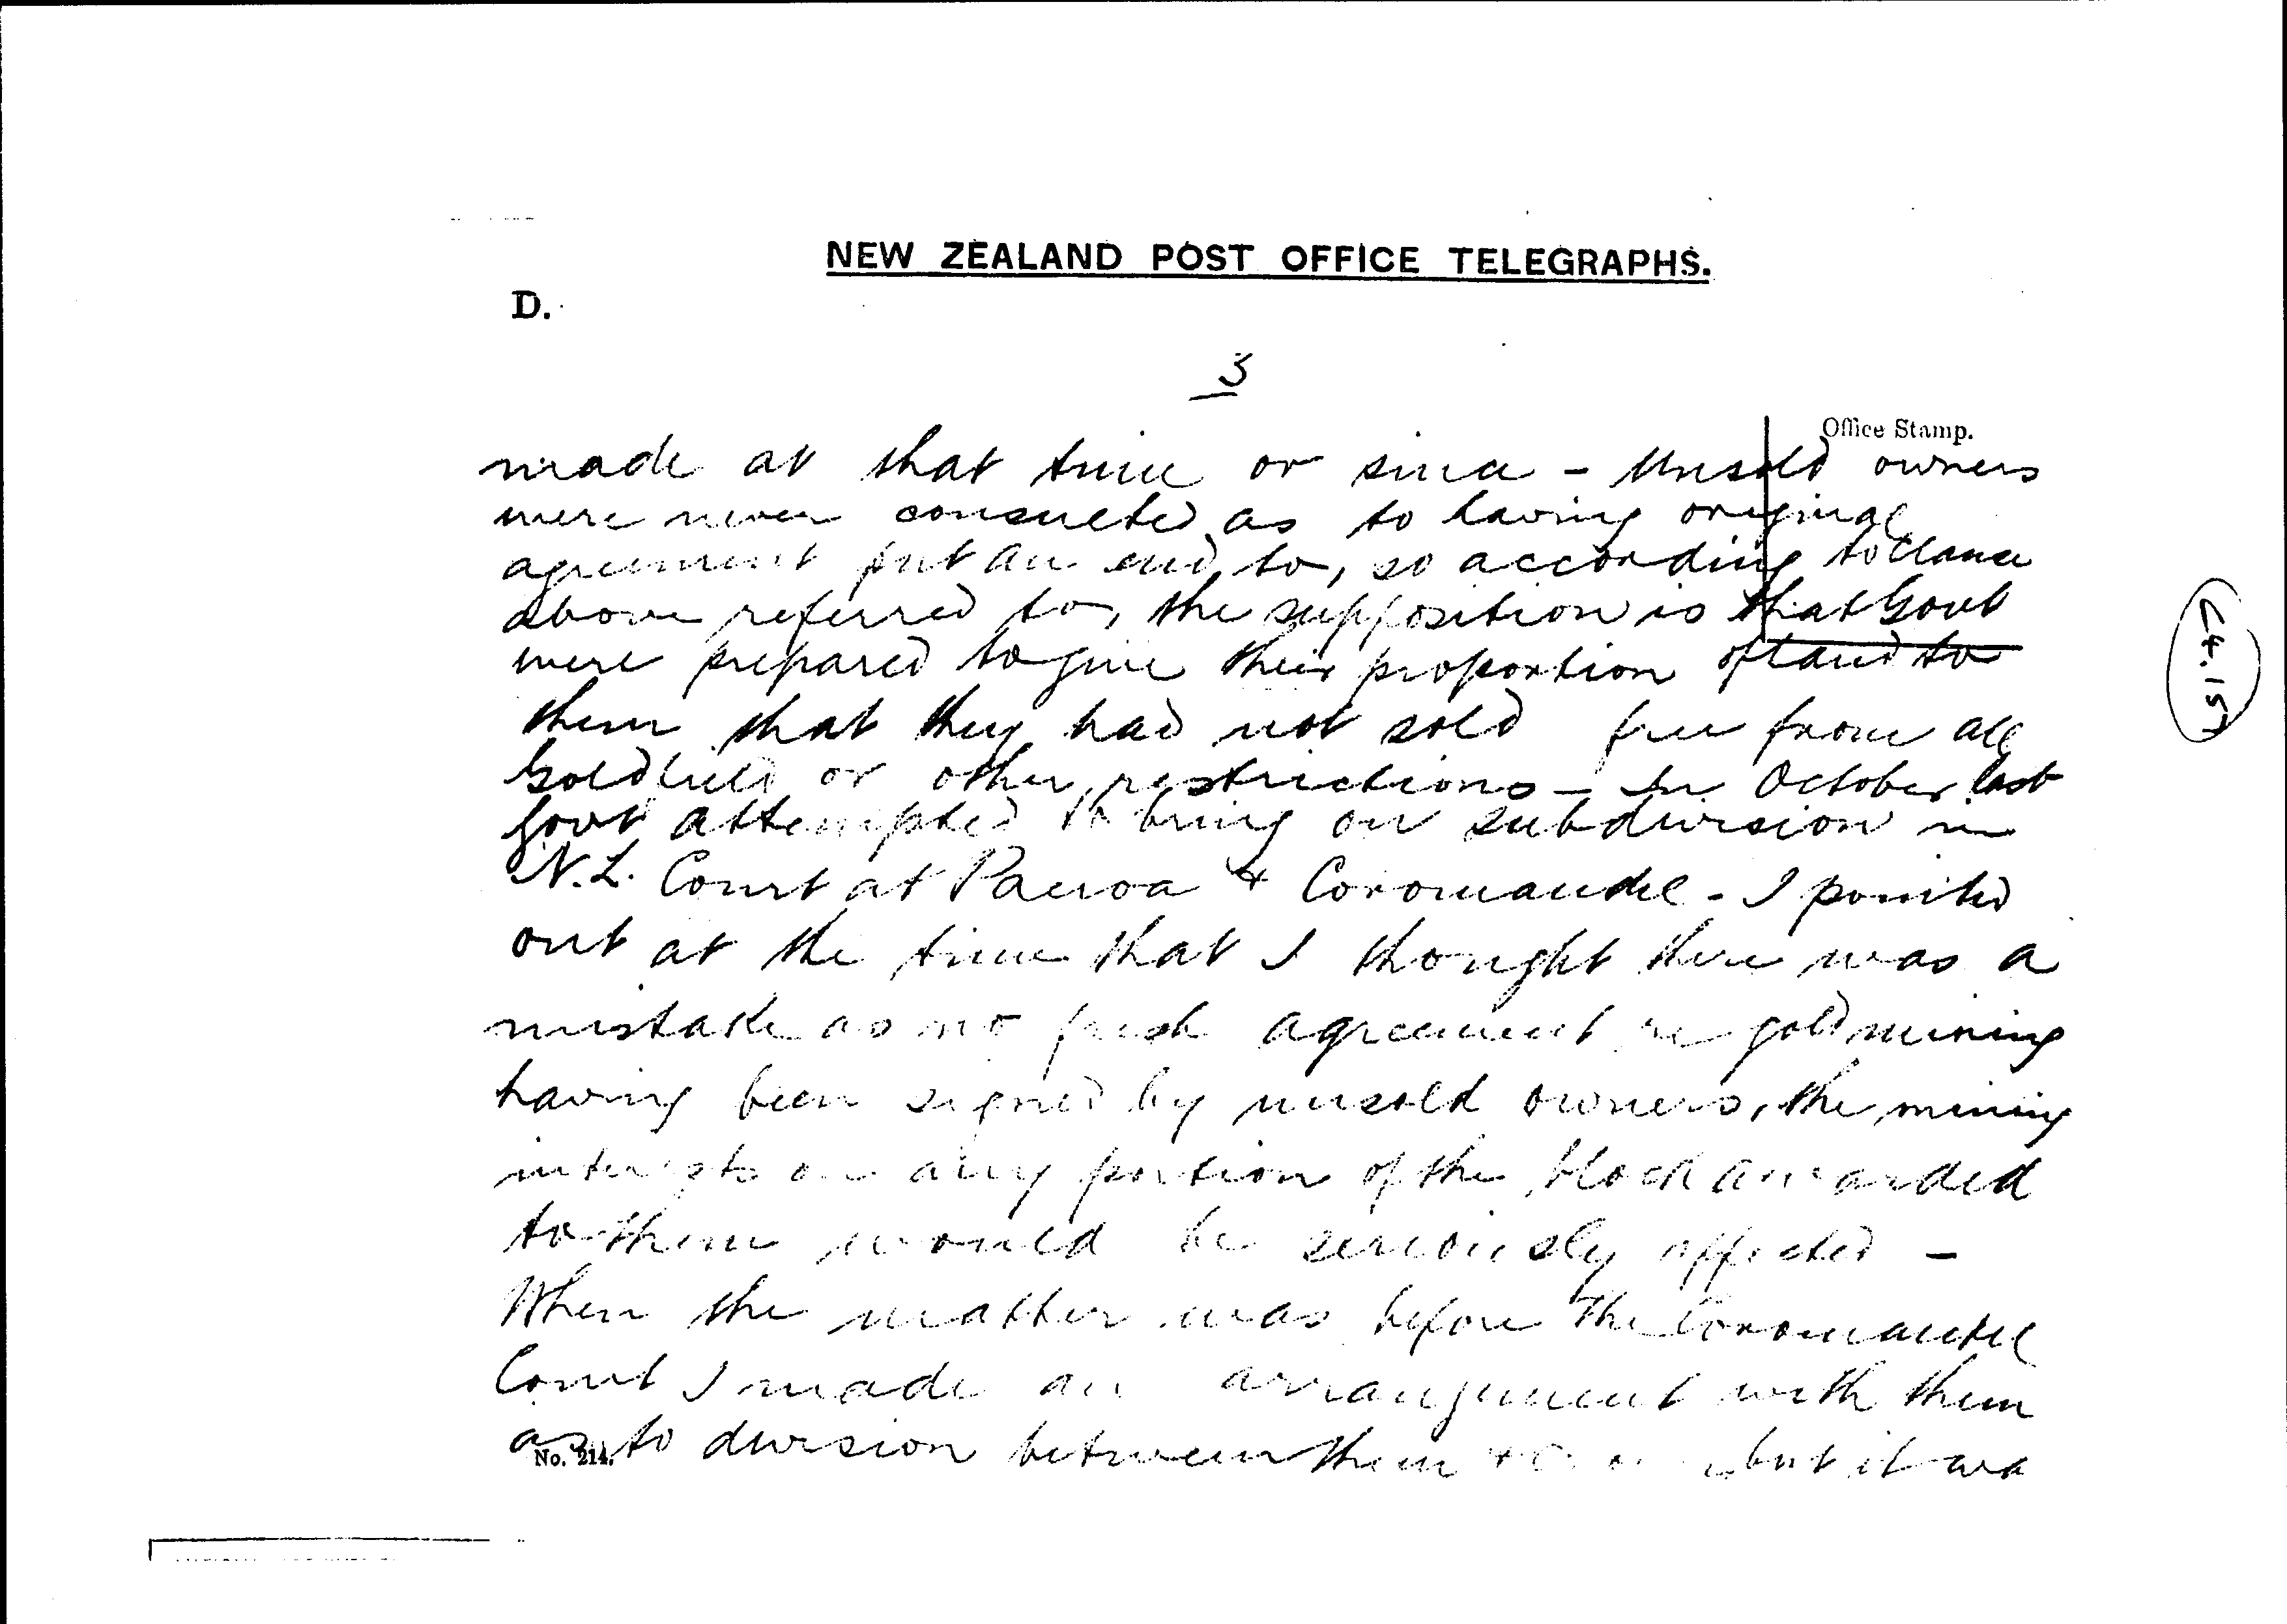 NEW ZEALAND POST OFFICE TELEGRAPHS.
D.
3
Office Stamp.
made at that time or since - Unsold owners
were never consulted as to having original
agreement put an end to, so according to clause
above referred to, the supposition is that Govt
were prepared to give their proportion of land to
them that they had not sold free from all
Goldfield or other restrictions - In October last
Govt attempted to bring on subdivision in
N.L. Court at Paeroa & Coromandel - I pointed
out at the time that I thought there was a
mistake as no fresh agreement re gold mining
having been signed by unsold owners, the mining
interests on any portion of the block awarded
to them would be seriously affected -
When the matter was before the Coromandel
Court I made an arrangement with them
as to division between them & but it was
No. 214.